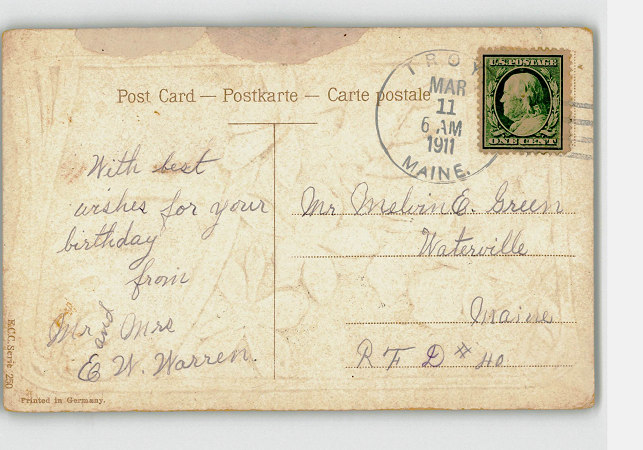 Post Card — Postkarte — Carte postale
TROY
MAR
11
6 AM
1911
MAINE.
U.S. POSTAGE
ONE CENT
With best
wishes for your
birthday
from
Mr and Mrs
E W. Warren.
Mr Melvin E. Green
Waterville
Maine
R F D # 40
E.C.C. Serie 250
Printed in Germany.